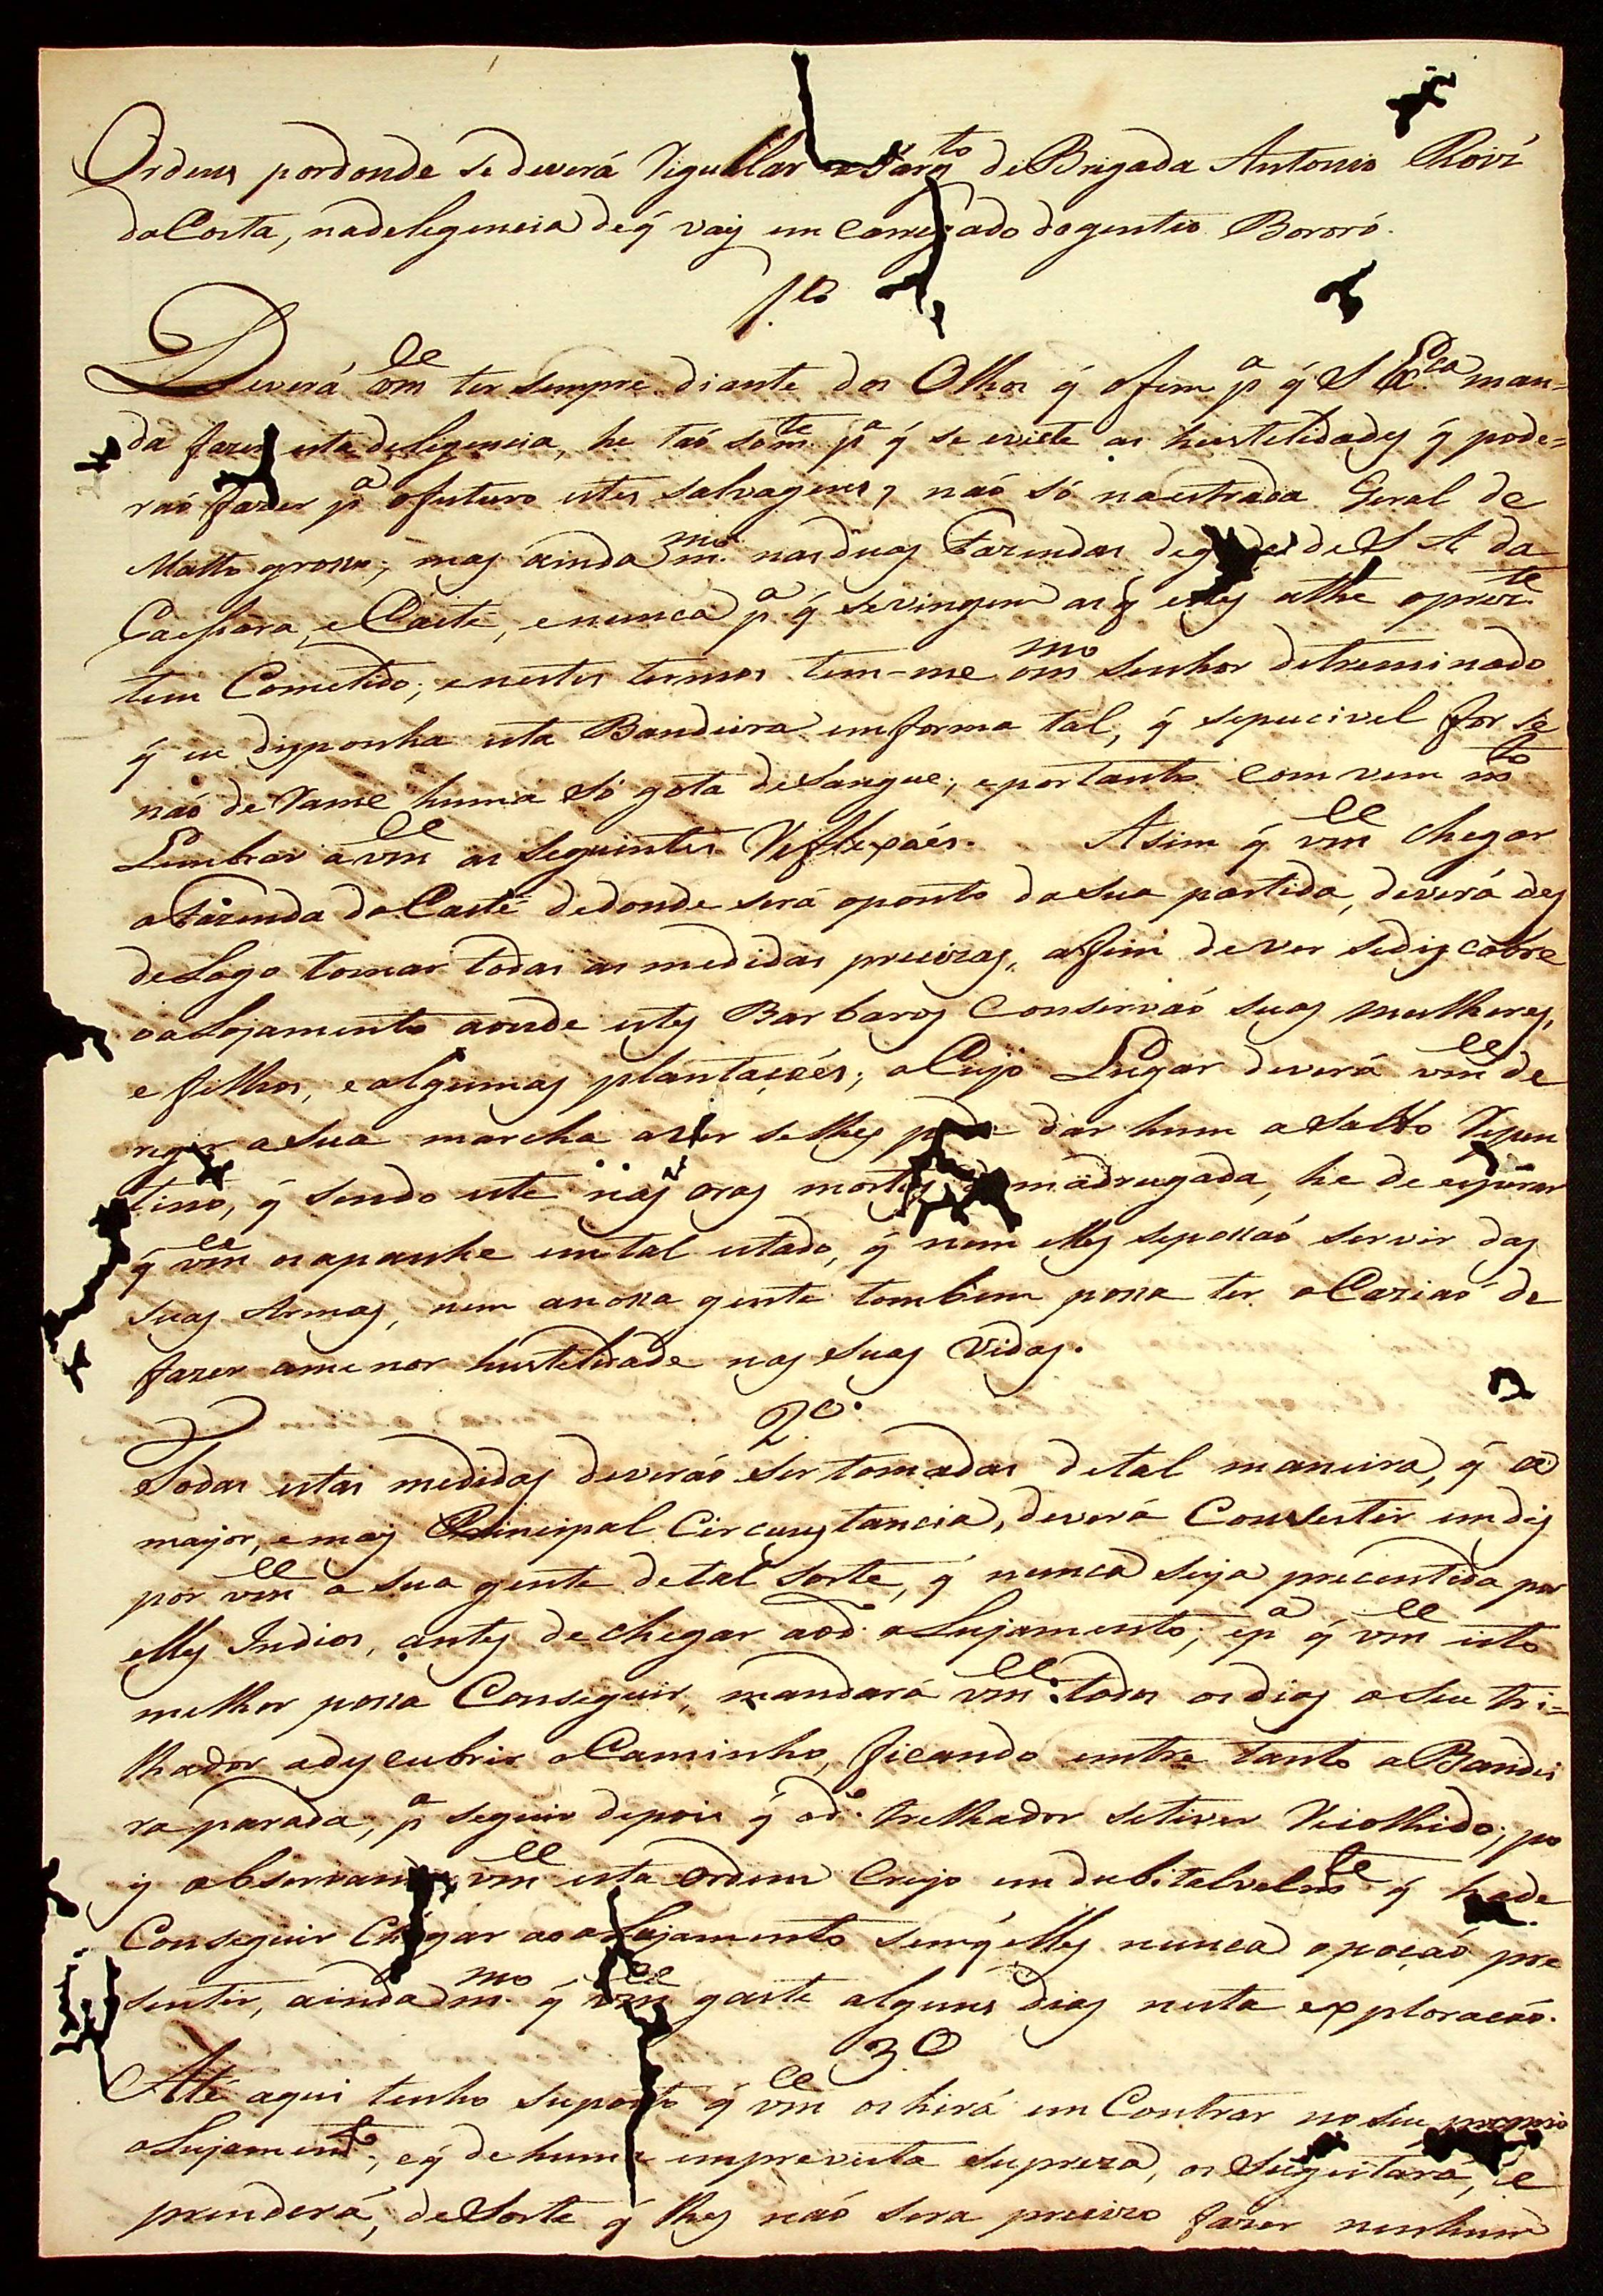 Ordens pordonde se deverá Regullar o Sarg.to de Brigada Antonio Roiz
da Costa, nadelegencia de q̃ vay em carregado do gentio Bororó.
1.o
Deverá Vm.ce ter sempre diante dos Olhos q̃ ofim p.a q̃ S Ex.ca man=
da fazer esta deligencia, he taó som.te p.a q̃ se eviete as hustelidadeˢ q̃ pode=
raó fazer p.a ofuturo estes salvagens, naó só naestrada Geral de
Matto grosso, mas ainda m.mo nasduas Fazendas de S A da
Caessara, e Caité, enunca p.a q̃ sevingem as q̃ elles athe oprez.te
tem Cometido; enestes termos tem-me om.mo senhor detreminado
q̃ eu disponha esta Bandeira emforma tal, q̃ sepucivel for se
naó de Rame huma só gota desangue; eportanto comvem m.to
Lembrar a vm.ce as seguintes Reflexoés. Asim q̃ vm.ce chegar
a Fazenda do Caité dedonde será oponto dasua partida, deverá des
deLogo tomar todas as medidas precizas, afim dever sediscobre
oaLojamento aonde estes Barbaros conservaó suas mulheres,
e filhos, ealgumas plantaçoés; aCujo Lugar deverá vm.ce de
reger asua marcha aver selhes pode dar hum asalto Repen
tino, q̃ sendo este nas oras mortas da madrugada, he de esperar
q̃ vm.ce osapanhe emtal estado, q̃ nem elles sepossaó servir das
suas Armas, nem anossa gente tombem possa ter oCaziaó de
fazer amenor hustelidade nas suas Vidas.
2.o
Todas estas medidas deveraó ser tomadas detal maneira, q̃ a
major, emais Principal Circunstancia, deverá Consestir emdis
por vm.ce a sua gente detal sorte, q̃ nunca seja precentida por
elles Indios, antes dechegar aod.o aLujamento; ep.a q̃ vm.ce isto
melhor possa Conseguir, mandará vm.ce todos osdias oseu tri=
lhador adescubrir oCaminho, ficando entre tanto aBandei
ra parada, p.a seguir depois q̃ od.o trelhador setiver Recolhido; po
is observando vm.ce esta Ordem Creyo emdubitalvelm.te q̃ hade
Conseguir Chegar aoaLojamento semq̃ elles nunca opoçaó pre
sentir, ainda m.mo q̃ vm.ce gaste alguns dias nesta exploracaó.
3.o
Até aqui tenho suposto q̃ vm.ce oshirá emContrar no seu proprio
aLujament.o, eq̃ dehuma emprevista supreza, os Sugeitará, e
prenderá, deSorte q̃ lhes naó sera precizo fazer nenhuma